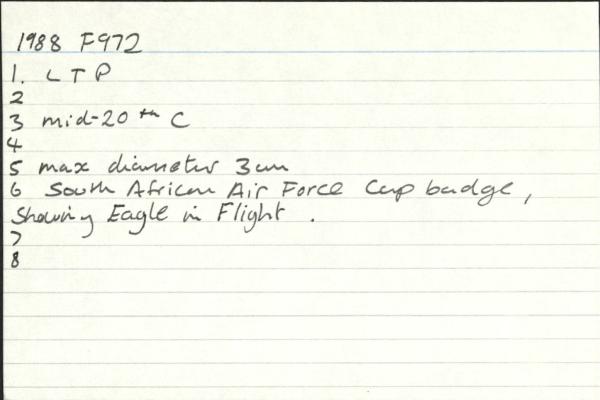 1988 F972
1. L T P
2
3 mid-20th C
4
5 max diameter 3cm
6 South African Air Force Cap badge,
Showing Eagle in Flight.
7
8